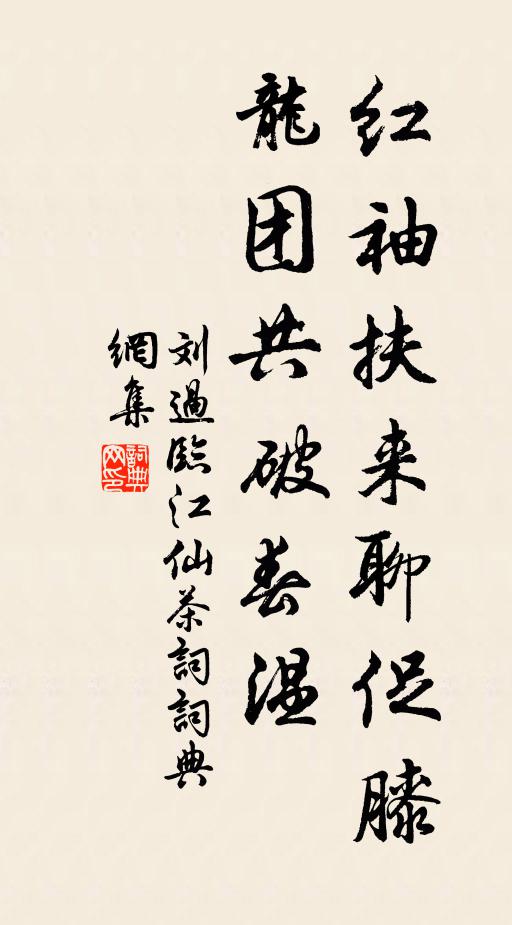 红袖扶来聊促膝
龍团共破春温
刘過臨江仙茶詞詞典
網集
詞典
网印